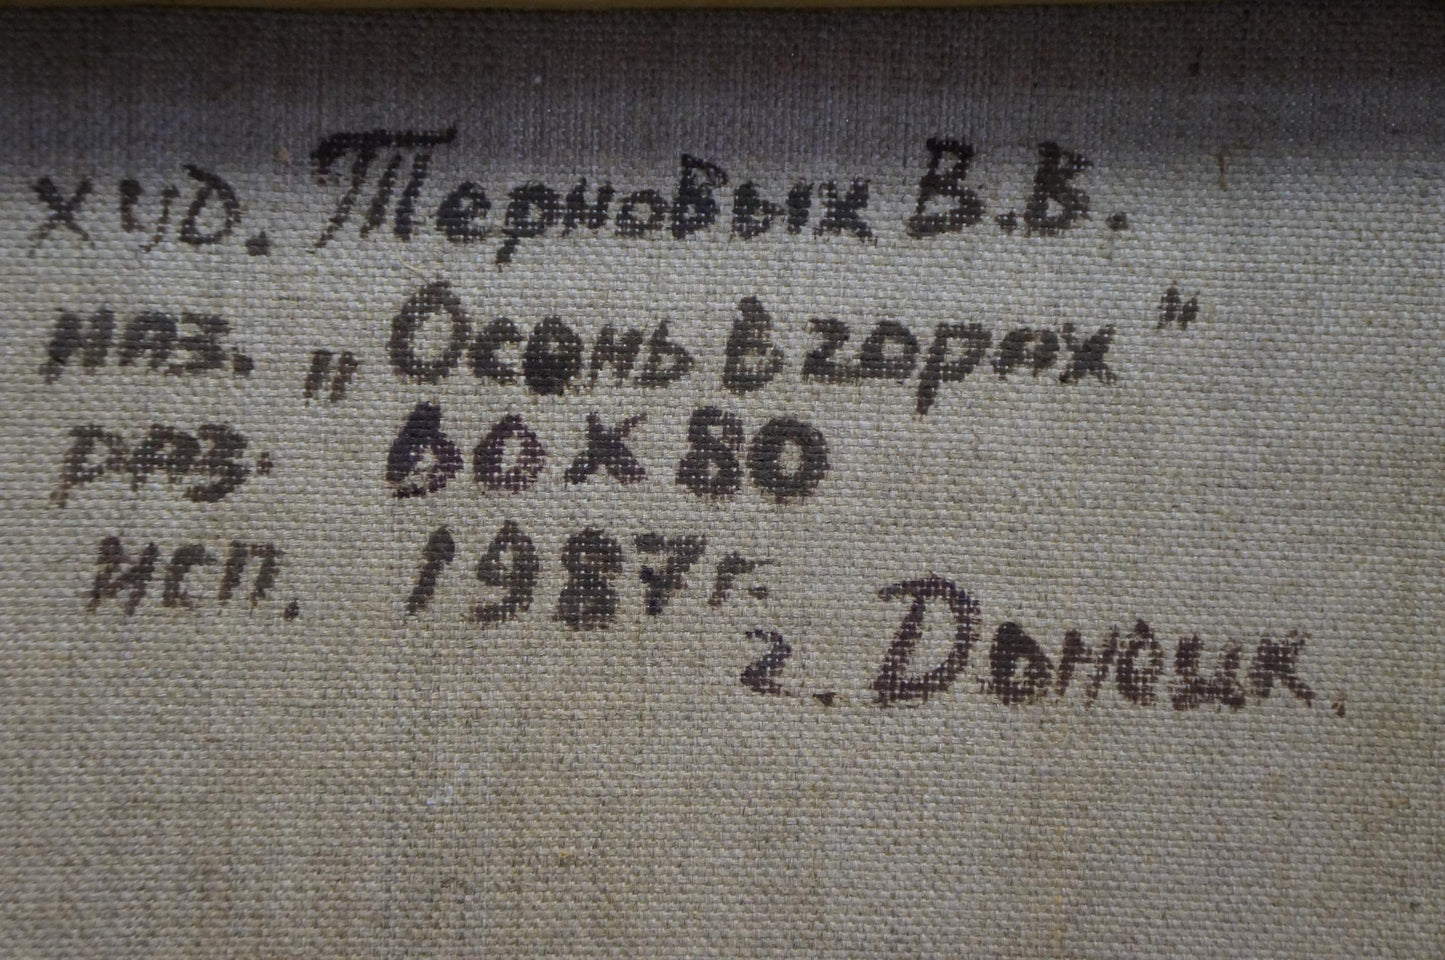 худ. Терновых В.В.
наз. „Осень в горах"
раз. 60х80
исп. 1987г.
г. Донецк.